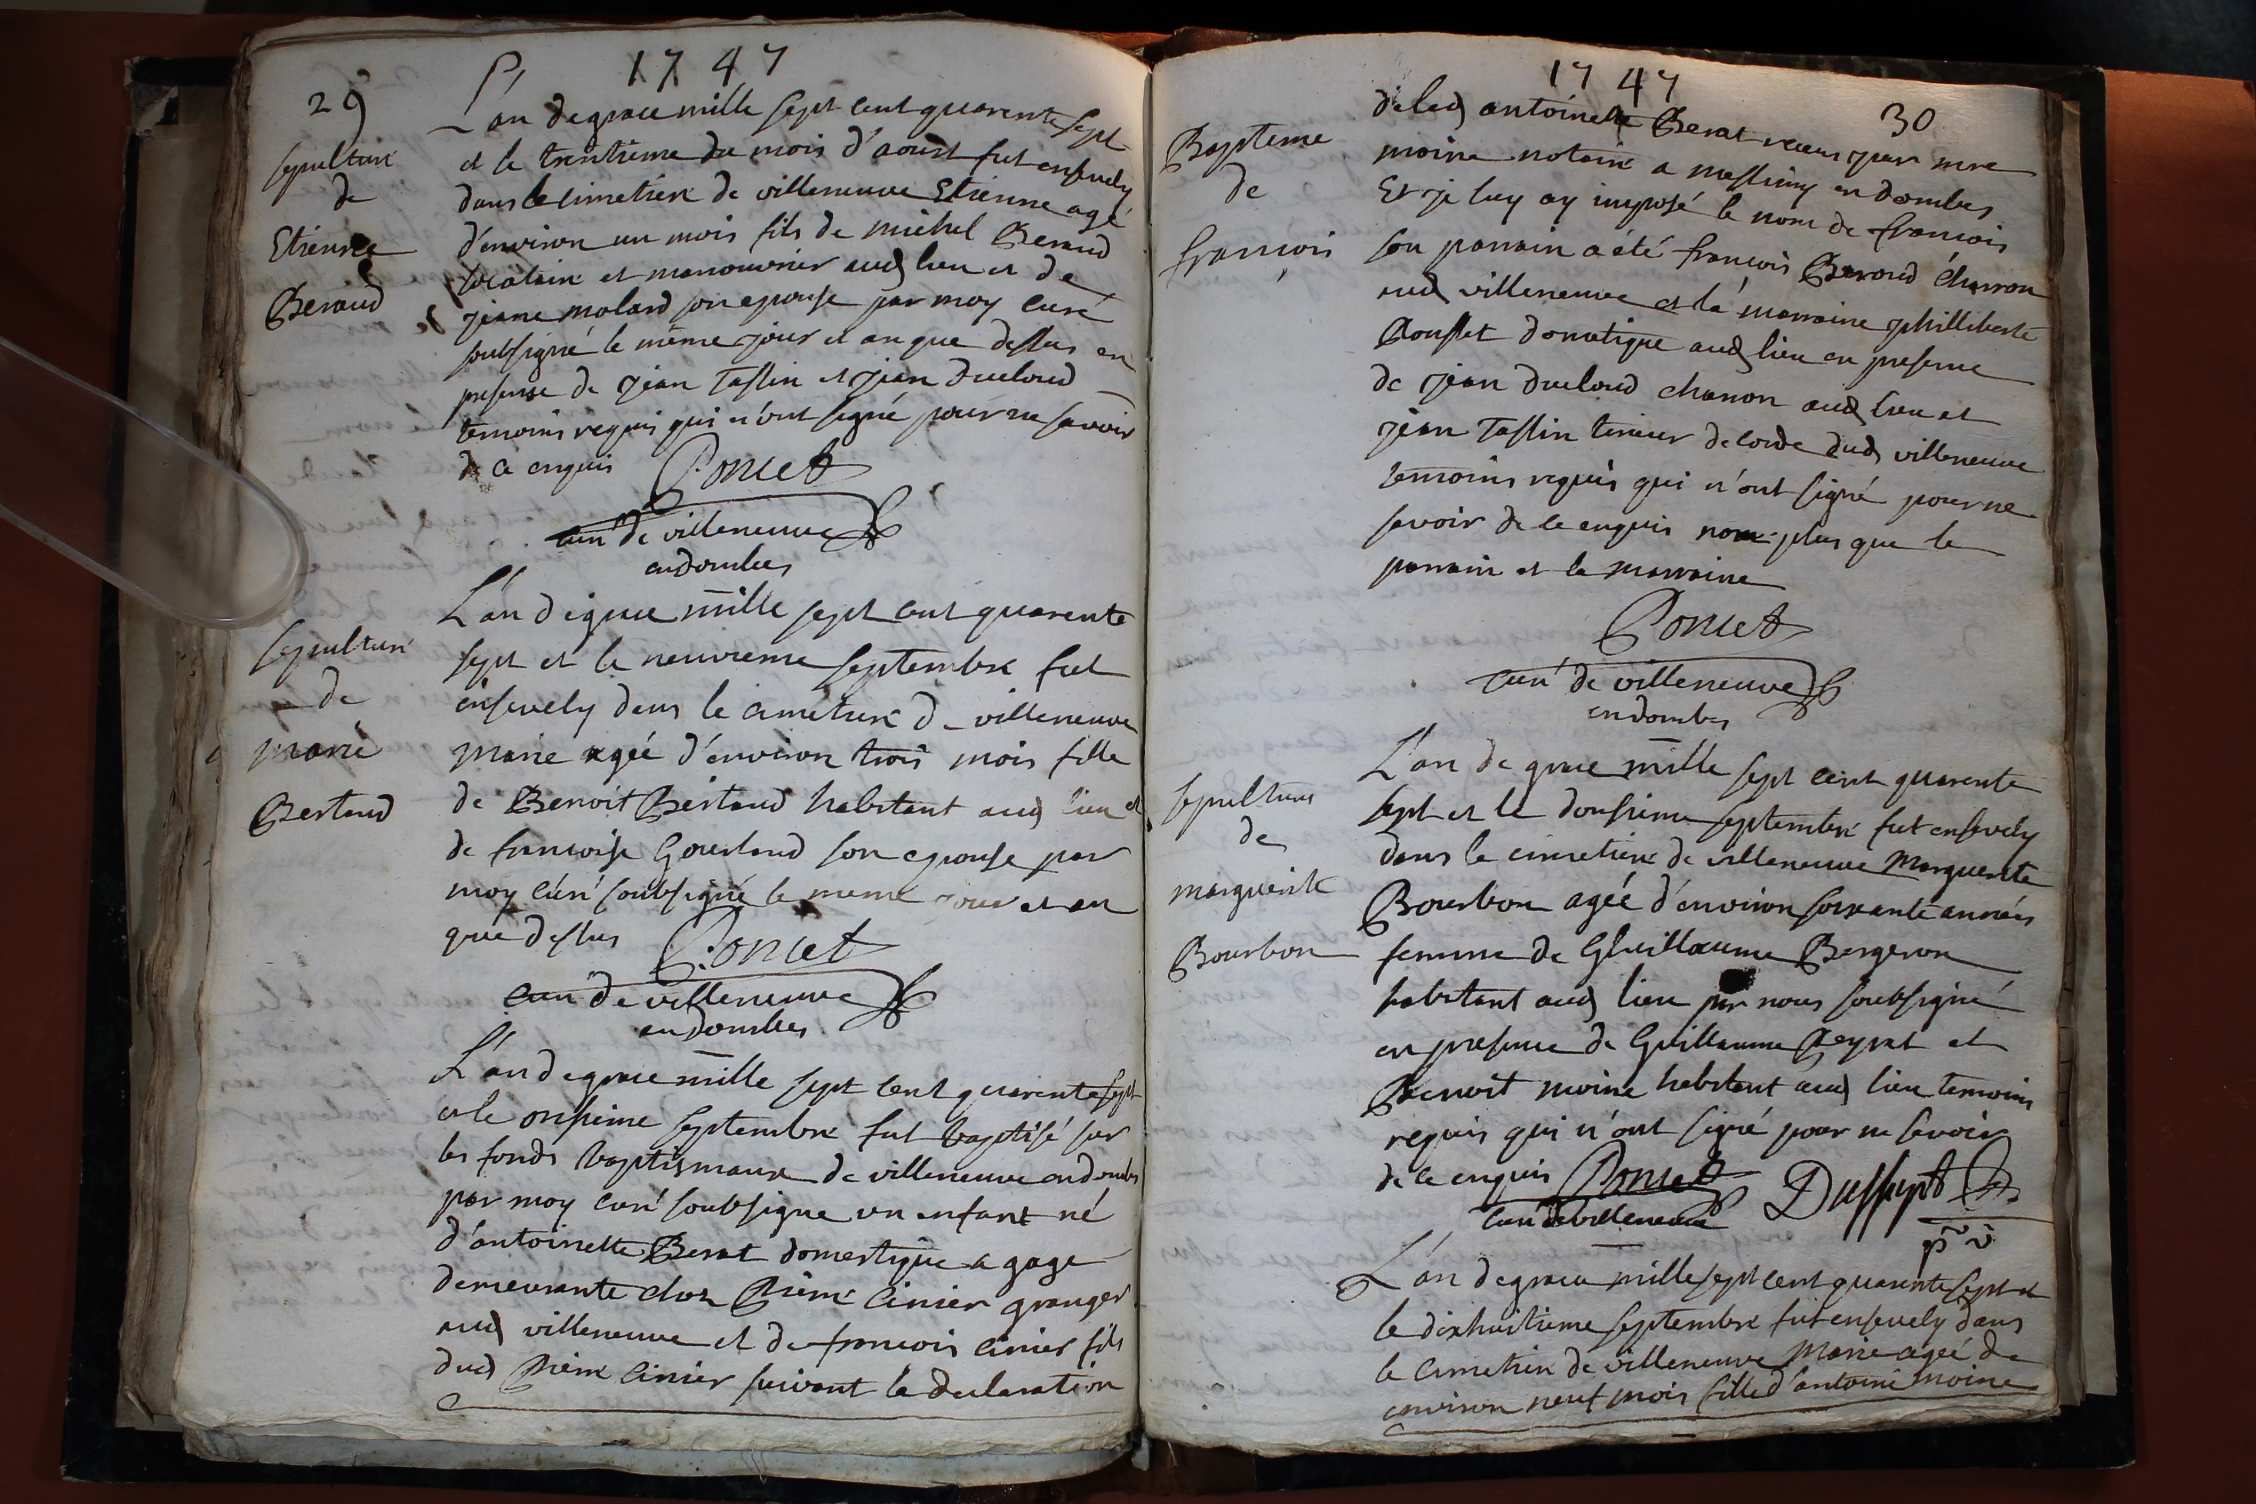 1747
29
sepulture
de
Etienne
Beraud
L'an de grace mille sept cent quarente sept
et le trentieme du mois d'aoust fut ensevely
dans le cimetiere de villeneuve Etienne agé
d'environ un mois fils de michel Beraud
locataire et manouvrier aud lieu et de
jeane molard son epouse par moy curé
soubsigné le même jour et an que dessus en
presense de jean Tassin et jean Ducloud
temoins requis qui n'ont signé pour ne savoir
de ce enquis Poncet
curé de villeneuve
en dombes
sepulture
de
marie
Bertaud
L'an de grace mille sept cent quarente
sept et le neuvieme septembre fut
ensevely dans le cimetiere de villeneuve
marie agée d'environ trois mois fille
de Benoit Bertaud habitant aud lieu et
de francoise Gourland son epouse par
moy curé soubsigné le meme jour et an
que dessus Poncet
curé de villeneuve
en dombes
L'an de grace mille sept cent quarente sept
et le onsieme septembre fut baptisé sur
les fonds baptismaux de villeneuve en dombes
par moy curé soubsigne un enfant né
d'antoinette Berat domestique a gage
demeurante chez Pierre Cinier granger
aud villeneuve et de francois Cinier fils
dud Pierre Cinier suivant la declaration
1747
30
Bapteme
de
francois
de lad antoinette Berat receus par mre
moine notaire a messimy en dombes
Et je luy ay imposé le nom de francois
son parrain a été francois Beraud charron
aud villeneuve et la marraine philliberte
Rousset domestique aud lieu en presense
de jean Ducloud charron aud lieu et
jean Tassin tireur de corde dud villeneuve
temoins requis qui n'ont signé pour ne
savoir de ce enquis non plus que le
parrain et la marraine
Poncet
curé de villeneuve
en dombes
sepulture
de
marguerite
Bourbon
L'an de grace mille sept cent quarente
sept et le dousieme septembre fut ensevely
dans le cimetiere de villeneuve Marguerite
Bourbon agée d'environ soixante années
femme de Ghuillaume Bergeron
habitant aud lieu par nous soubsigné
en presence de Guillaume Peyrat et
Benoit moine habitant aud lieu temoins
requis qui n'ont signé pour ne savoir
de ce enquis Poncet Dussupt
curé de villeneuve
L'an de grace mille sept cent quarente sept et
le dixhuitieme septembre fut ensevely dans
le cimetiere de villeneuve Marie agée de
environ neuf mois fille d'antoine moine